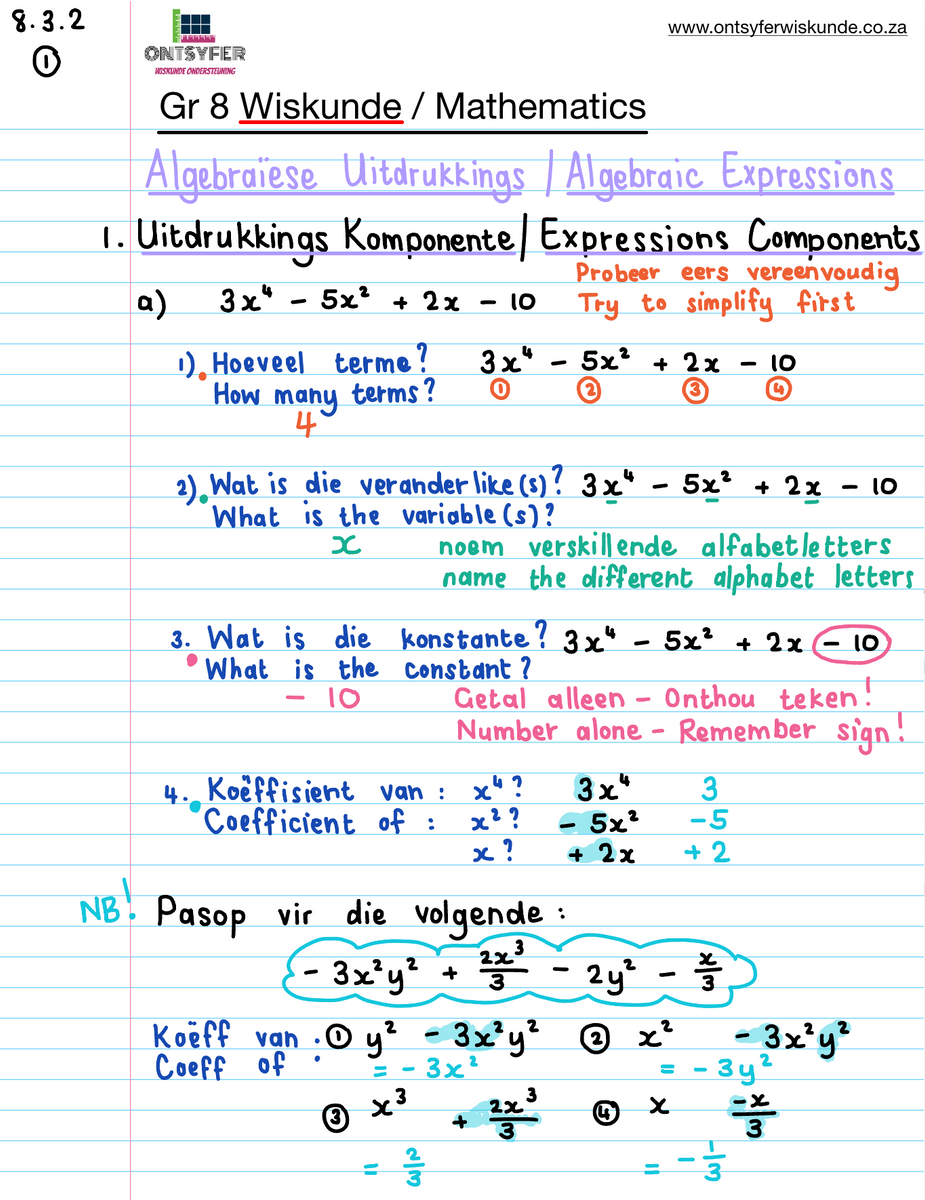 8.3.2
①
ONTSYFER
WISKUNDE ONDERSTEUNING
www.ontsyferwiskunde.co.za
Gr 8 Wiskunde / Mathematics
Algebraïese Uitdrukkings / Algebraic Expressions
1. Uitdrukkings Komponente / Expressions Components
Probeer eers vereenvoudig
a) 3x⁴ - 5x² + 2x - 10 Try to simplify first
1). Hoeveel terme? 3x⁴ - 5x² + 2x - 10
How many terms? ① ② ③ ④
4
2). Wat is die veranderlike(s)? 3x⁴ - 5x² + 2x - 10
What is the variable(s)?
x noem verskillende alfabetletters
name the different alphabet letters
3. Wat is die konstante? 3x⁴ - 5x² + 2x - 10
What is the constant?
- 10 Getal alleen - Onthou teken!
Number alone - Remember sign!
4. Koëffisient van : x⁴? 3x⁴ 3
Coefficient of : x²? - 5x² -5
x? + 2x + 2
NB! Pasop vir die volgende :
- 3x²y² + 2x³/3 - 2y² - x/3
Koëff van : ① y² - 3x²y² ② x² - 3x²y²
Coeff of : = - 3x² = - 3y²
③ x³ + 2x³/3 ④ x -x/3
= 2/3 = - 1/3